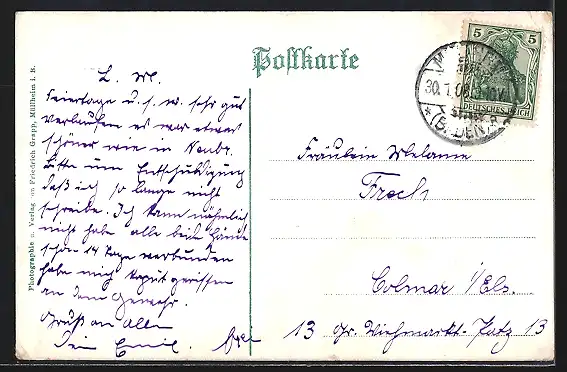 Postkarte
L. M.
Feiertage u. s. w. sehr gut
verlaufen es war etwas
schöner wie in
Bitte um Entschuldigung
daß ich so lange nicht
schreibe. Ich kann nähmlich
nicht habe alle beide Hände
schon 14 Tage verbunden
habe mich kaput gerissen
an dem Gewehr.
Gruß an Alle
Dein Emil.
Photographie u. Verlag von Friedrich Grapp, Müllheim i. B.
5 5
DEUTSCHES REICH
30.1.08
(BADEN)
Fräulein Melanie
Froch
Colmar i/Els.
13 Gr. Viehmarkt-Platz 13